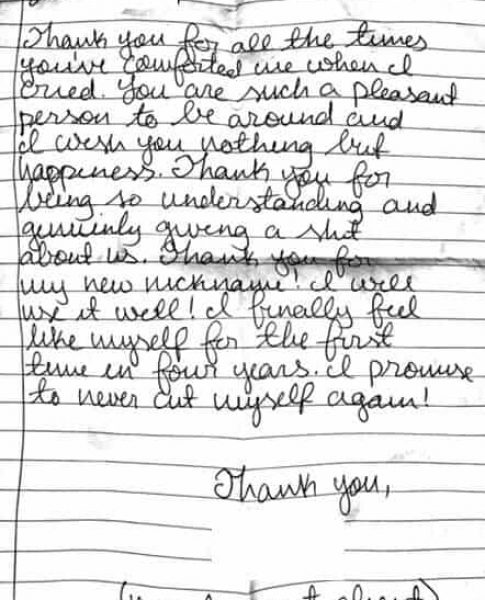 Thank you for all the times
you've comforted me when I
cried. You are such a pleasant
person to be around and
I wish you nothing but
happiness. Thank you for
being so understanding and
genuinly giving a shit
about us. Thank you for
my new nickname! I will
use it well! I finally feel
like myself for the first
time in four years. I promise
to never cut myself again!
Thank you,